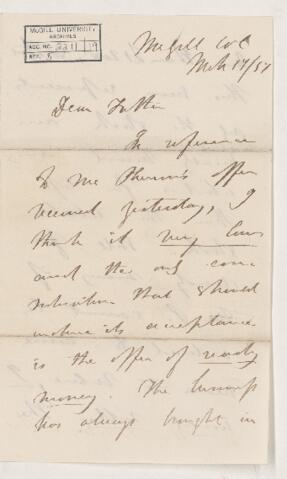 McGILL UNIVERSITY
ARCHIVES
ACC. NO.
REF.
McGill Col
Mch 17/57
Dear Father
In reference
to Mr offer
received yesterday, I
think it very low
and the only con-
sideration that should
induce its acceptance
is the offer of ready
money. The business
has always brought in